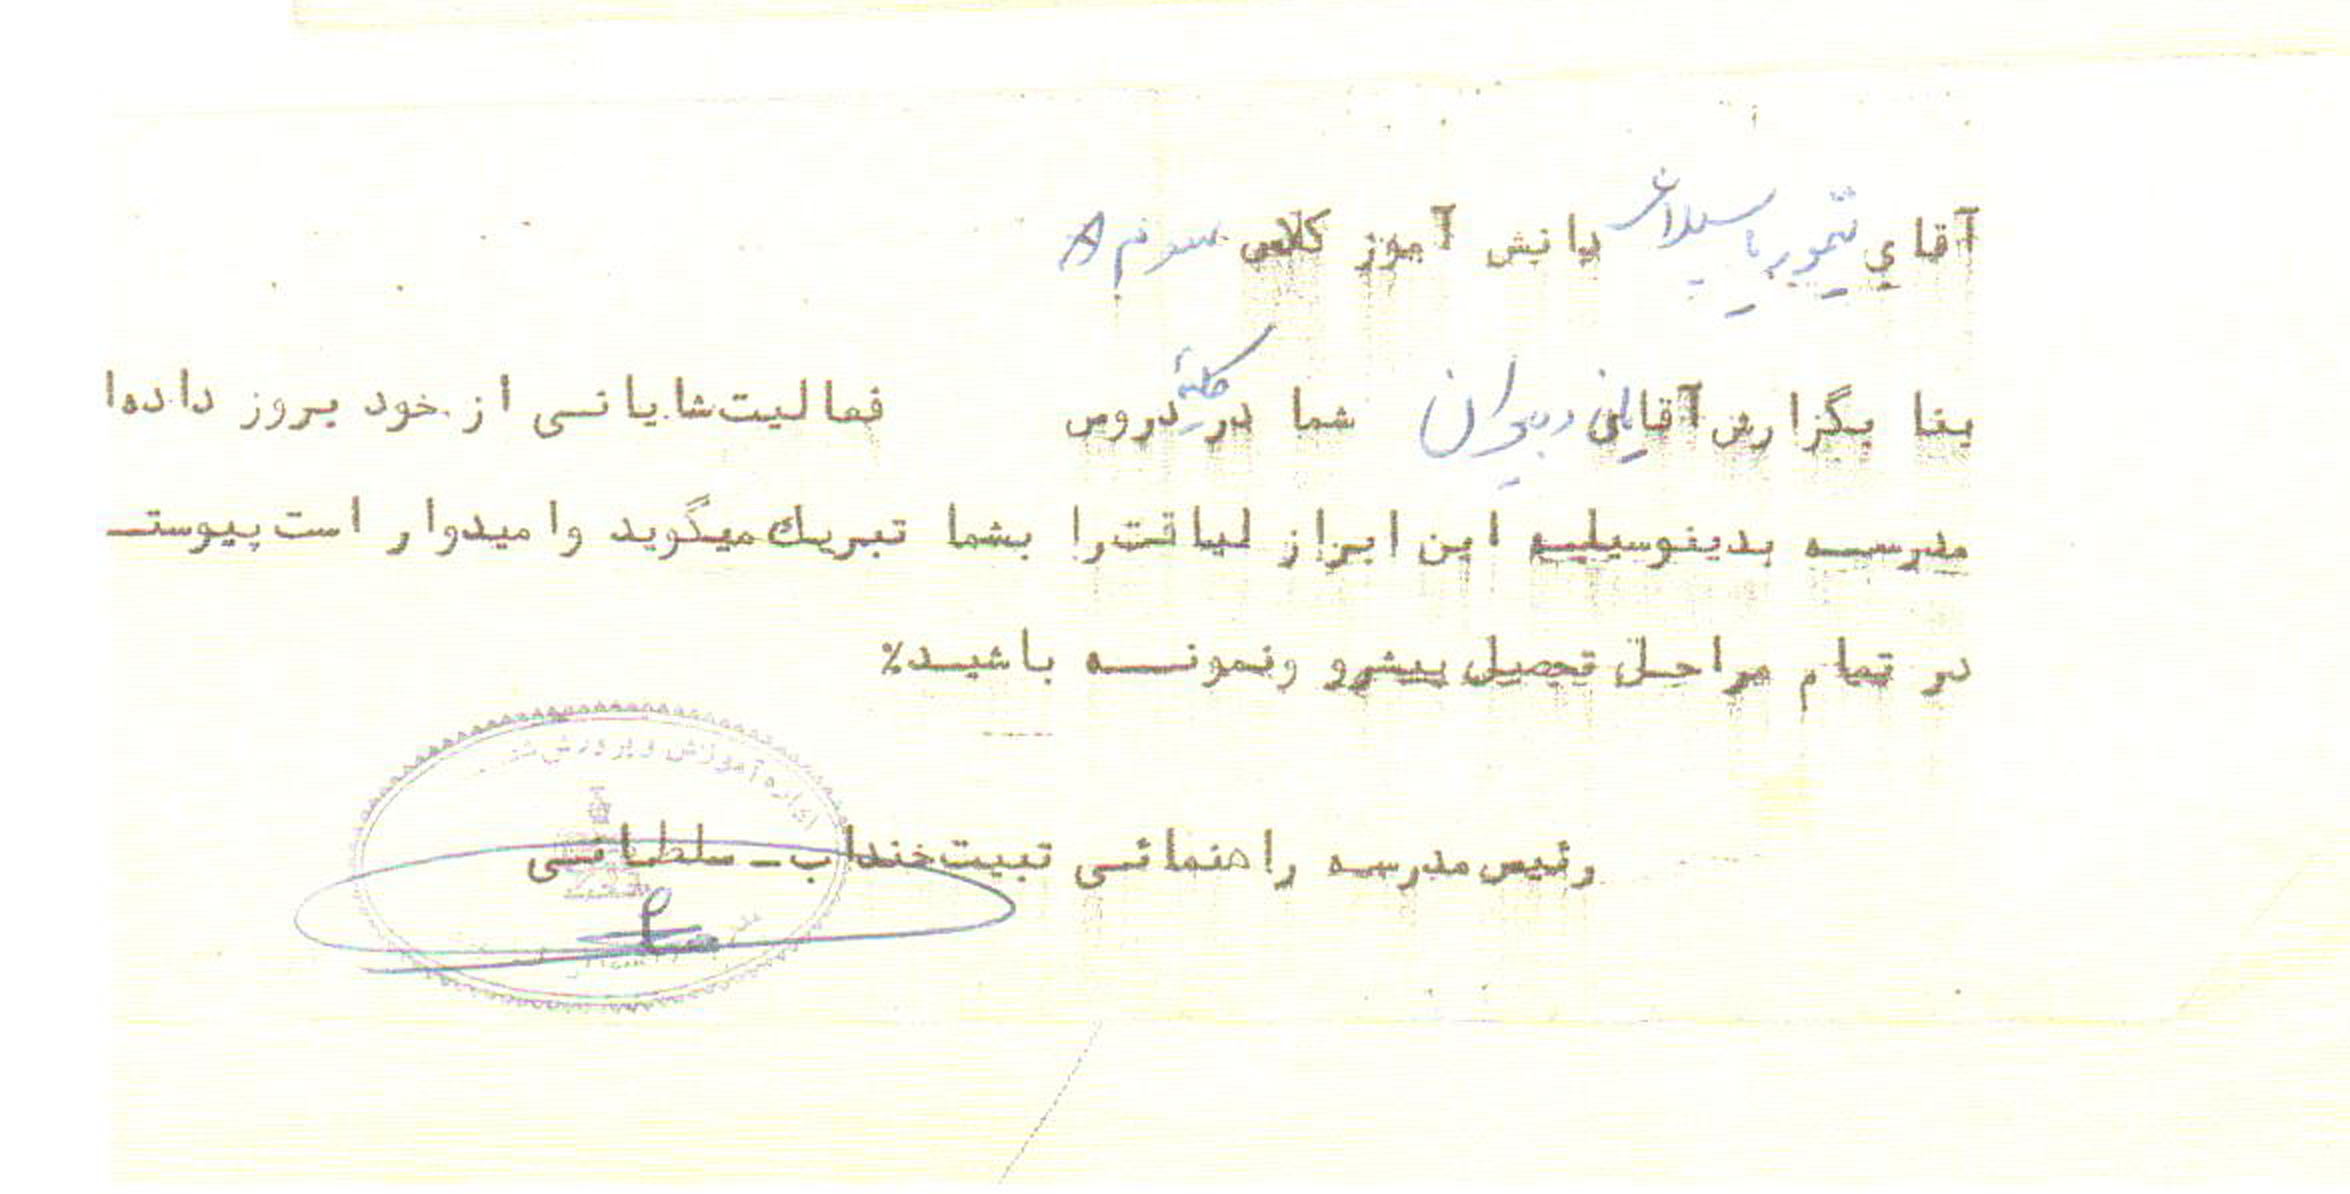 آقای تیمور یاسیلان دانش آموز کلاس سوم A
بنا بگزارش آقایان دبیران شما در کلیه دروس فعالیت شایانی از خود بروز داده‌ا
مدرسه بدینوسیله این ابراز لیاقت را بشما تبریك میگوید و امیدوار است پیوستـ
در تمام مراحل تحصیل پیشرو و نمونه باشید٪
اداره آموزش و پرورش
رئیس مدرسه راهنمائی تبیت خنداب ـ سلطانی